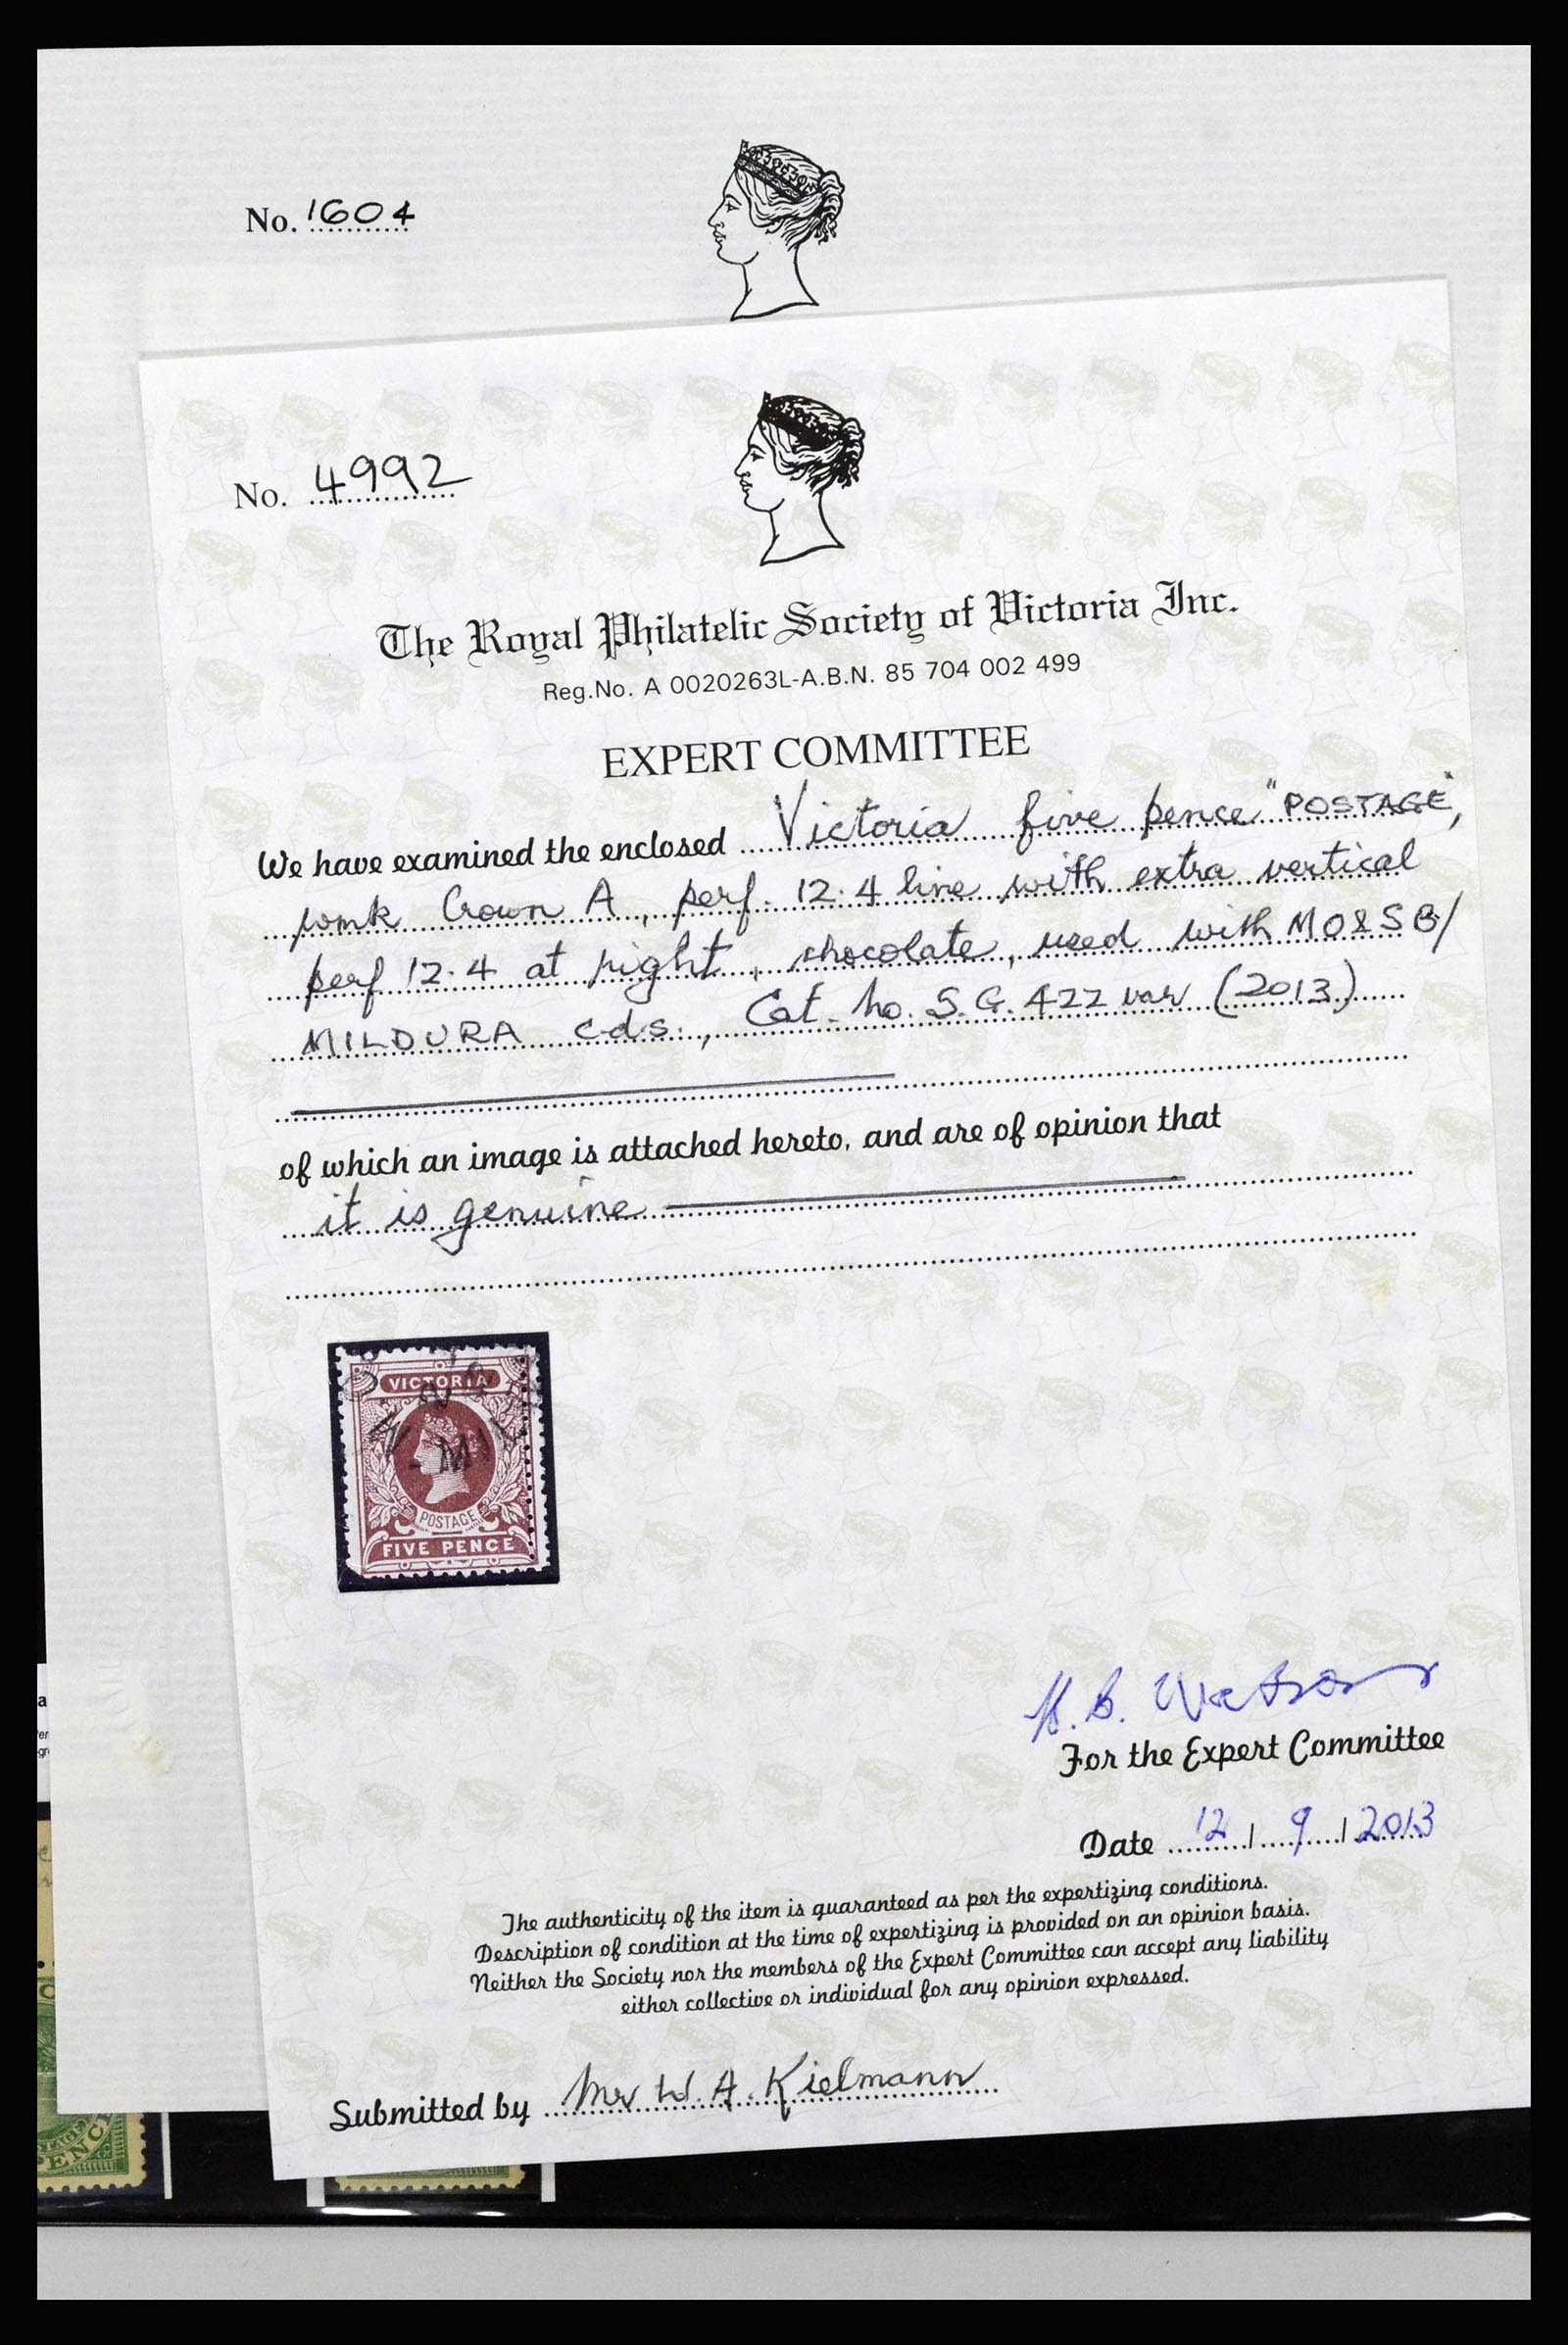 No. 1604
No. 4992
The Royal Philatelic Society of Victoria Inc.
Reg.No. A 0020263L-A.B.N. 85 704 002 499
EXPERT COMMITTEE
We have examined the enclosed Victoria five pence "POSTAGE",
wmk Crown A, perf. 12.4 line with extra vertical
perf 12.4 at right, chocolate, used with MO&SB/
MILDURA c.d.s., Cat. no. S.G. 422 var (2013)
of which an image is attached hereto, and are of opinion that
it is genuine
VICTORIA
POSTAGE
FIVE PENCE
H. B. Watson
For the Expert Committee
Date 12 / 9 / 2013
The authenticity of the item is guaranteed as per the expertizing conditions.
Description of condition at the time of expertizing is provided on an opinion basis.
Neither the Society nor the members of the Expert Committee can accept any liability
either collective or individual for any opinion expressed.
Submitted by Mr W. A. Kielmann